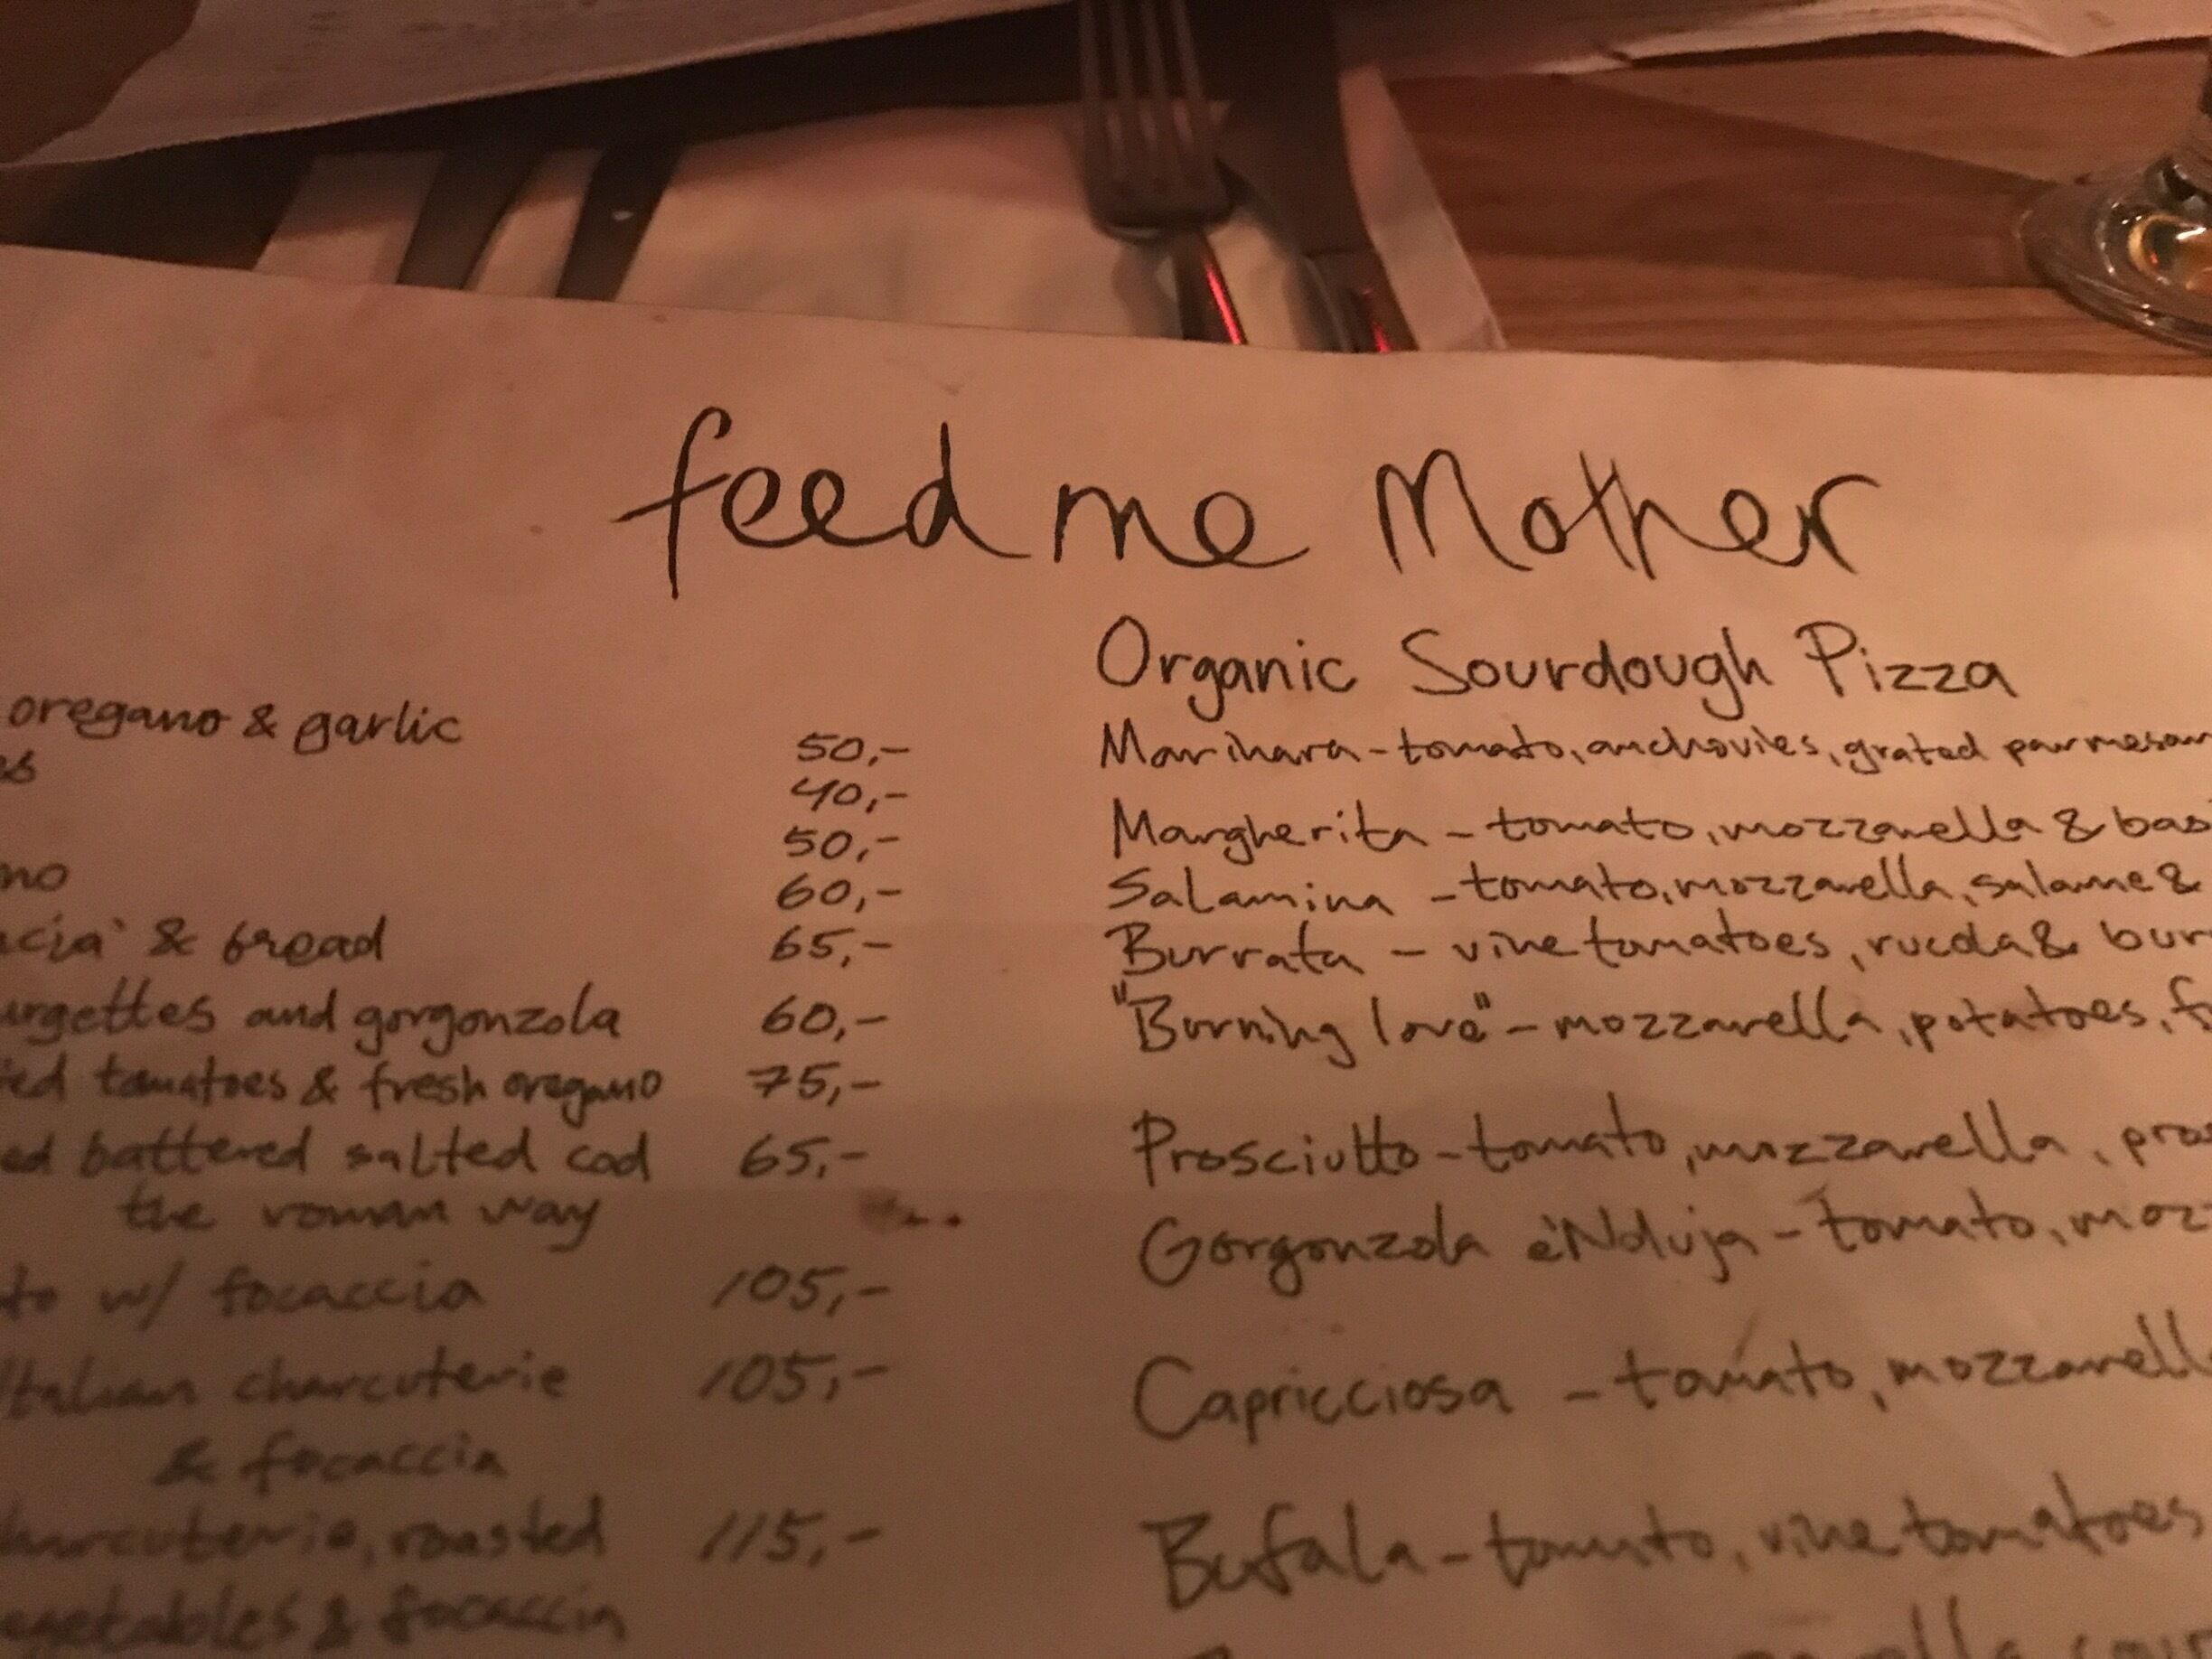 feed me Mother
oregano & garlic 50,-
40,-
50,-
60,-
& bread 65,-
and gorgonzola 60,-
tomatoes & fresh oregano 75,-
battered salted cod 65,-
the roman way
w/ focaccia 105,-
Italian charcuterie 105,-
& focaccia
charcuterie, roasted 115,-
vegetables & focaccia
Organic Sourdough Pizza
Marinara - tomato, anchovies, grated parmesan
Margherita - tomato, mozzarella & bas
Salamina - tomato, mozzarella, salame &
Burrata - vine tomatoes, rucola & bur
"Burning love" - mozzarella, potatoes, f
Prosciutto - tomato, mozzarella, pros
Gorgonzola è Nduja - tomato, moz
Capricciosa - tomato, mozzarell
Bufala - tomato, vine tomatoes